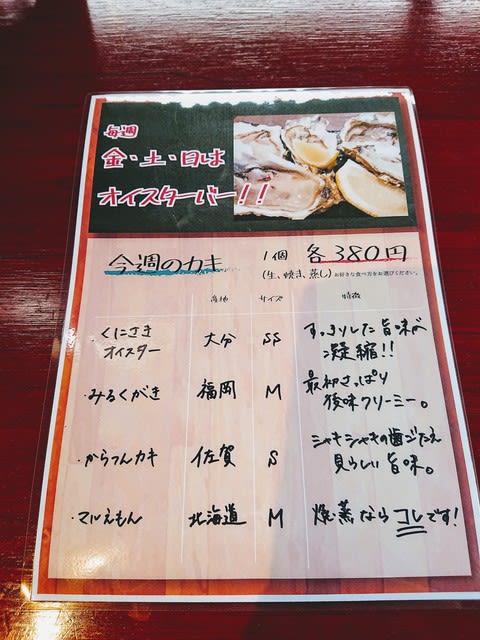 毎週
金・土・日は
オイスターバー！！
今週のカキ 1個 各380円
(生、焼き、蒸し) お好きな食べ方をお選びください。
産地 サイズ 特徴
・くにさきオイスター 大分 SS すっきりした旨味が
凝縮！！
・みるくがき 福岡 M 最初さっぱり
後味クリーミー。
・からつんカキ 佐賀 S シャキシャキの歯ごたえ
旨味。
・マルえもん 北海道 M 焼、蒸ならコレです！